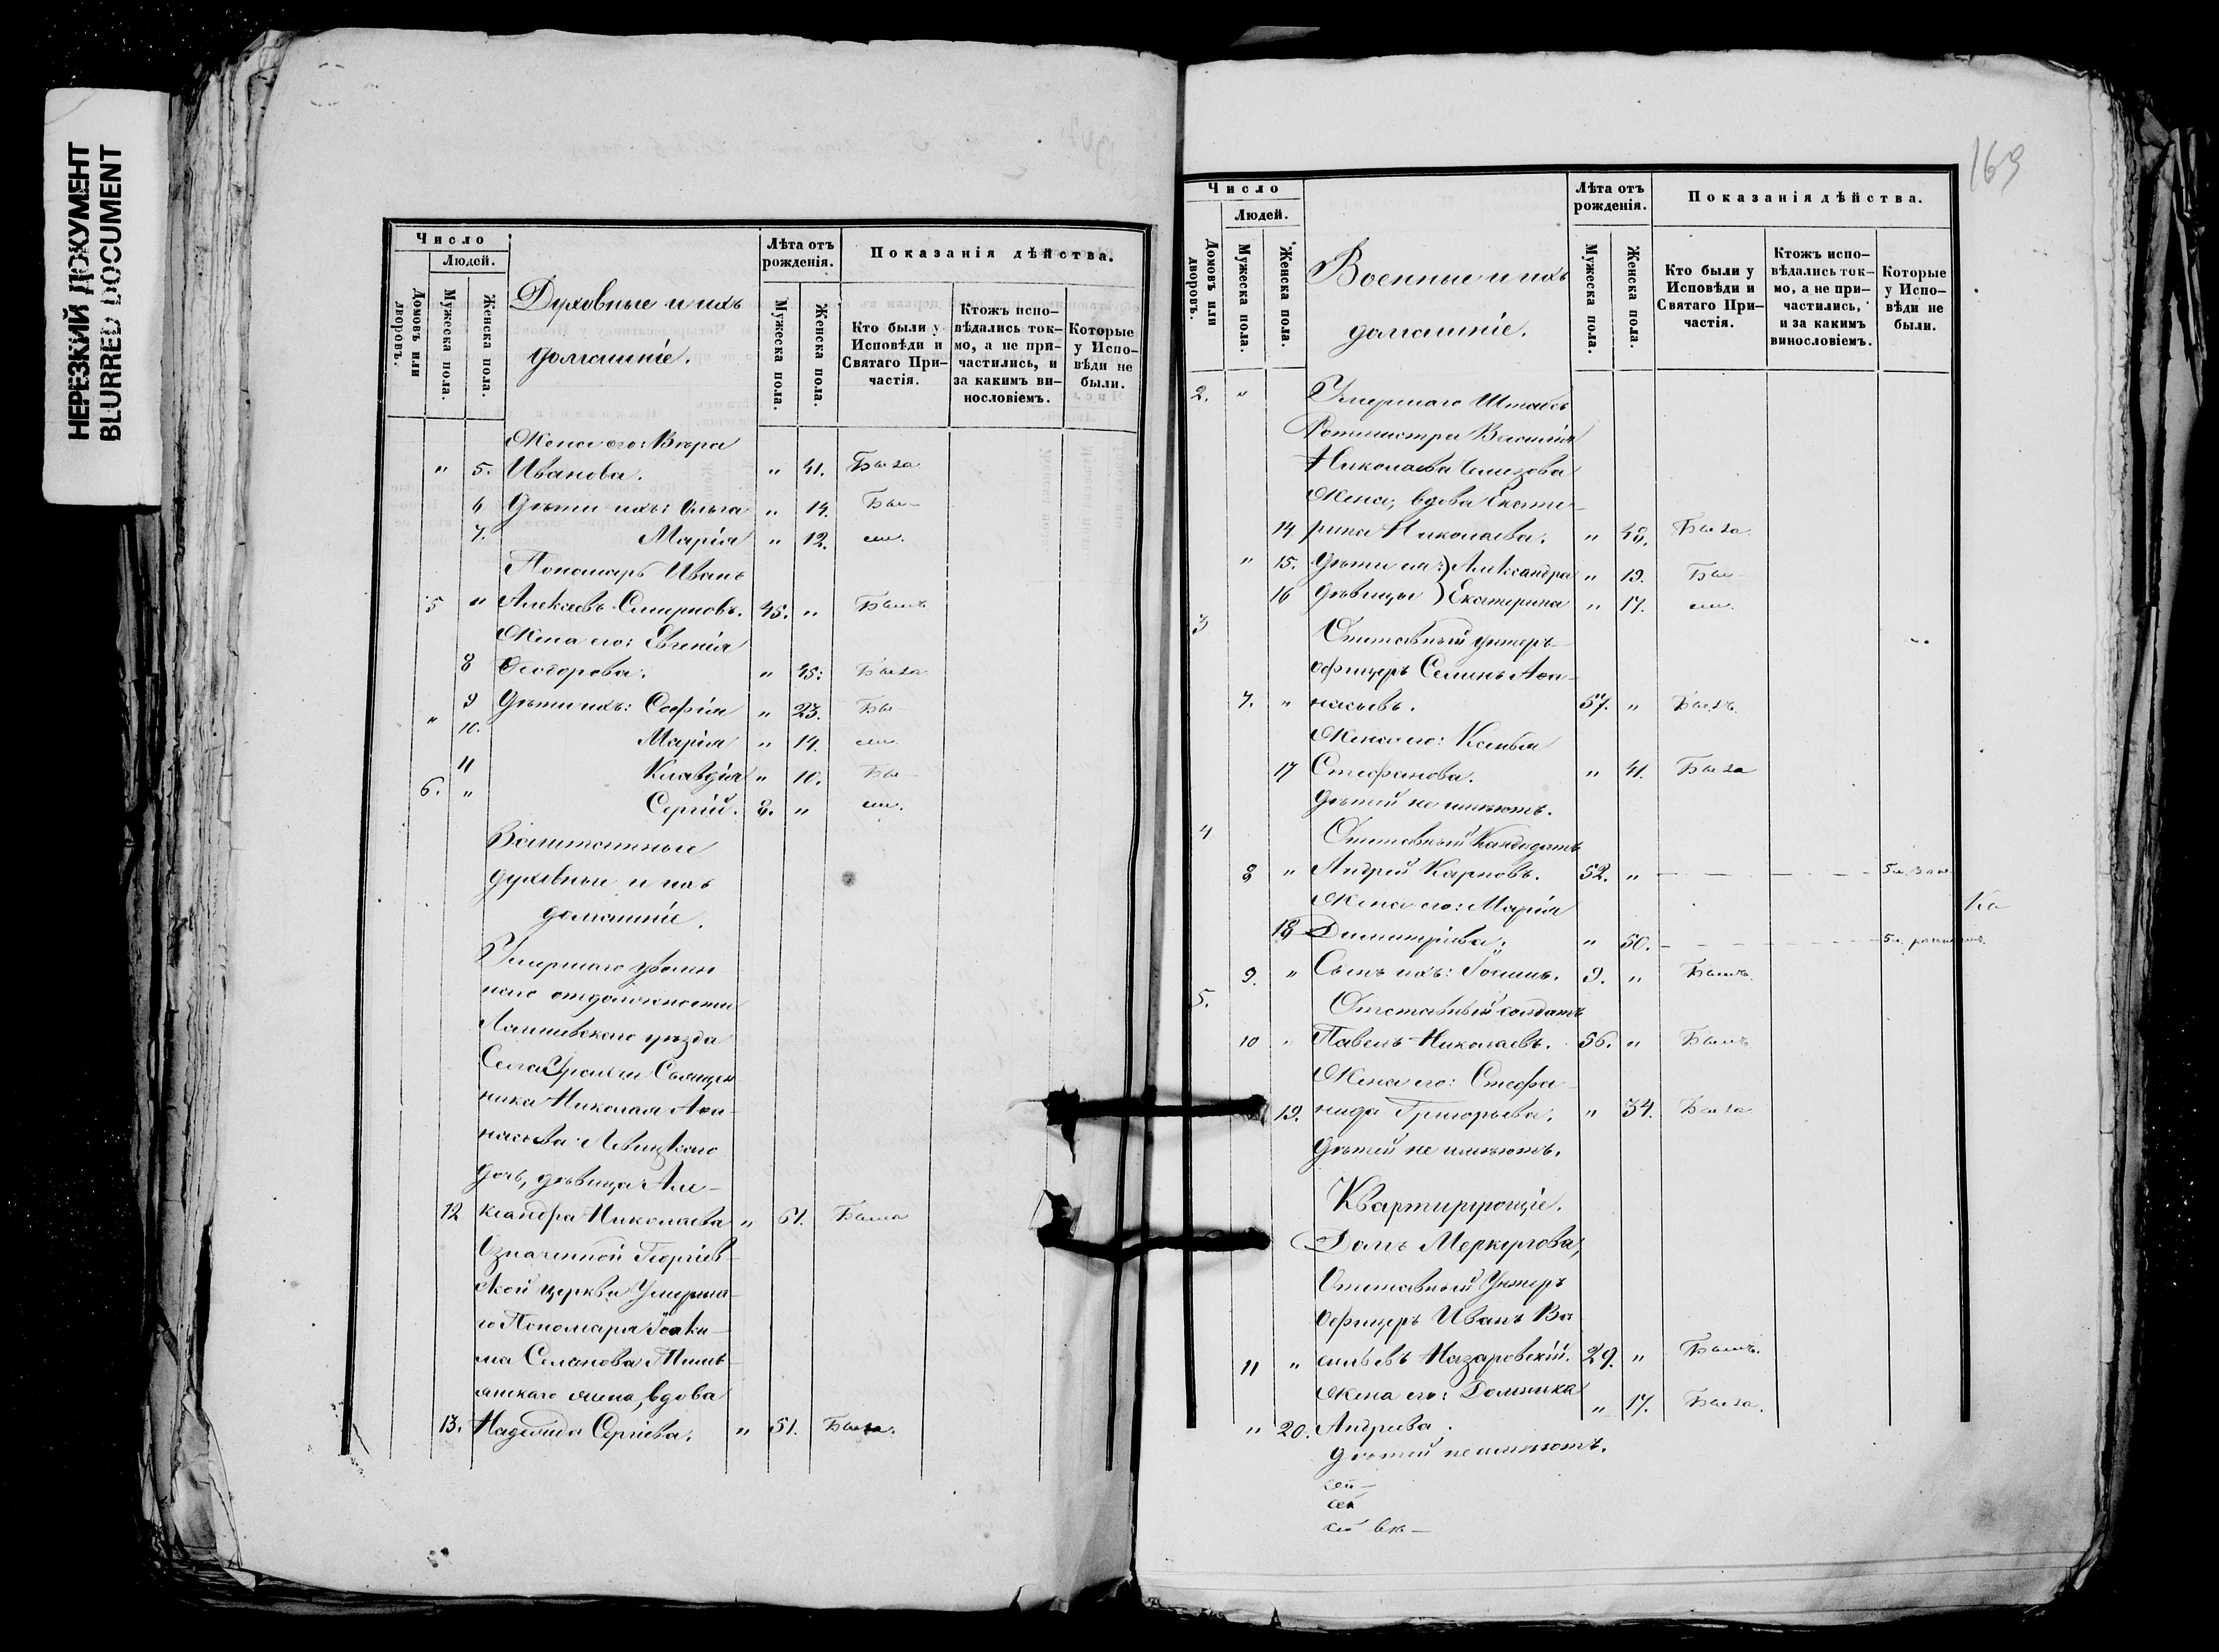 НЕРЕЗКИЙ ДОКУМЕНТ
BLURRED DOCUMENT
Число
Людей.
Домовъ или дворовъ.
Мужеска пола.
Женска пола.
Духовные и ихъ
домашніе.
Лѣта отъ рожденія.
Мужеска пола.
Женска пола.
Показанія дѣйства.
Кто были у Исповѣди и Святаго При-частія.
Ктожъ испо-вѣдались ток-мо, а не при-частились, и за какимъ ви-нословіемъ.
Которые у Испо-вѣди не были.
Жена его: Вѣра
" 5. Иванова. " 41. Была
6. Дѣти ихъ: Ольга " 14. Бы-
7. Марія " 12. ли.
Пономарь Иванъ
5 " Алексѣевъ Смирновъ. 45. " Былъ
Жена его: Евгенія
8 Ѳеодорова. " 45. Была
9 Дѣти ихъ: Софія " 23. Бы-
" 10. Марія " 14. ли.
11 Клавдія " 10. Бы-
6. " Сергій. 8. " ли.
Заштатные
духовные и ихъ
домашніе.
Умершаго уволен
наго отъ должности
Лаишевскаго уѣзда
Села Священ
ника Николая Аѳа-
насьева Левицкаго
дочь, дѣвица Але-
12 ксандра Николаева " 61. Была
Означенной Георгіев-
ской церкви Умерша-
го Пономаря Іоаки-
ма Семенова
жена, вдова
13. Надежда Сергіева. " 51. Была.
163
Число
Людей.
Домовъ или дворовъ.
Мужеска пола.
Женска пола.
Военные и ихъ
домашніе.
Лѣта отъ рожденія.
Мужеска пола.
Женска пола.
Показанія дѣйства.
Кто были у Исповѣди и Святаго При-частія.
Ктожъ испо-вѣдались ток-мо, а не при-частились, и за какимъ винословіемъ.
Которые у Испо-вѣди не были.
2. " Умершаго Штабсъ
Ротмистра Василія
Николаева
Жена, вдова Екате-
14 рина Николаева. " 48. Была.
" 15. Дѣти ея:) Александра " 19. Бы-
16 дѣвицы ) Екатерина " 17. ли.
3 Отставный унтеръ-
офицеръ Семенъ Аѳа-
7. " насьевъ. 57. " Былъ.
Жена его: Ксенія
17 Стефанова. " 41. Была
Дѣтей не имѣютъ.
4 Отставный Кандидатъ
8 " Андрей Карповъ. 52. " — — — — —
Жена его: Марія
18 Димитріева. " 50. — — — —
9. " Сынъ ихъ: Іоаннъ. 9. " Былъ.
5. Отставный солдатъ
10 " Павелъ Николаевъ. 56. " Былъ
Жена его: Стефа-
19. нида Григорьева. " 34. Была
Дѣтей не имѣютъ.
Квартирующіе.
Домъ Меркулова,
Отставный Унтеръ
Офицеръ Иванъ Ва
11 " сильевъ Назаровскій. 29. " Былъ.
Жена его: Домника " 17. Была.
" 20. Андреева.
Дѣтей не имѣютъ.